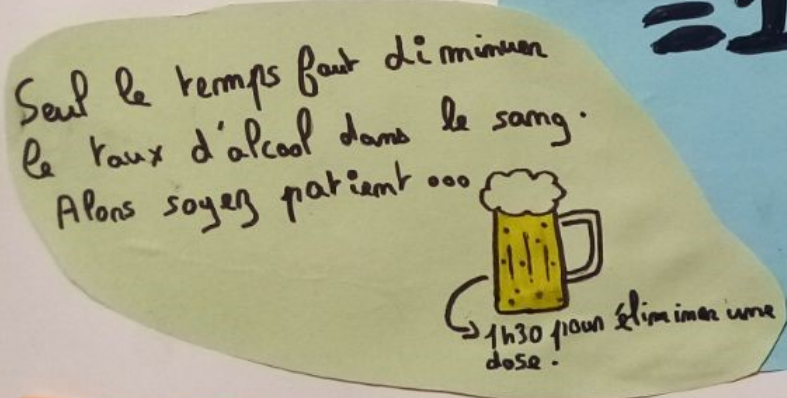 = 1
Seul le temps faut diminuer
le taux d'alcool dans le sang.
Alors soyez patient ...
1h30 pour éliminer une
dose.